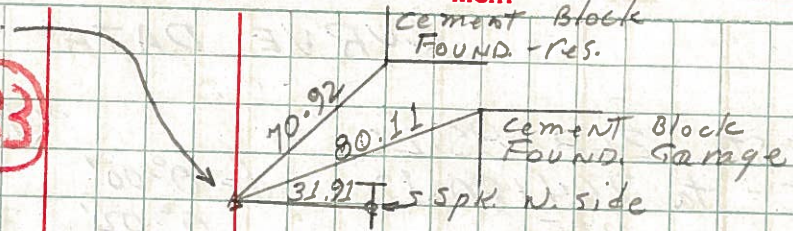 Cement Block
FOUND. - res.
3
70.92
80.11
Cement Block
FOUND. Garage
31.91
Spk. N. side